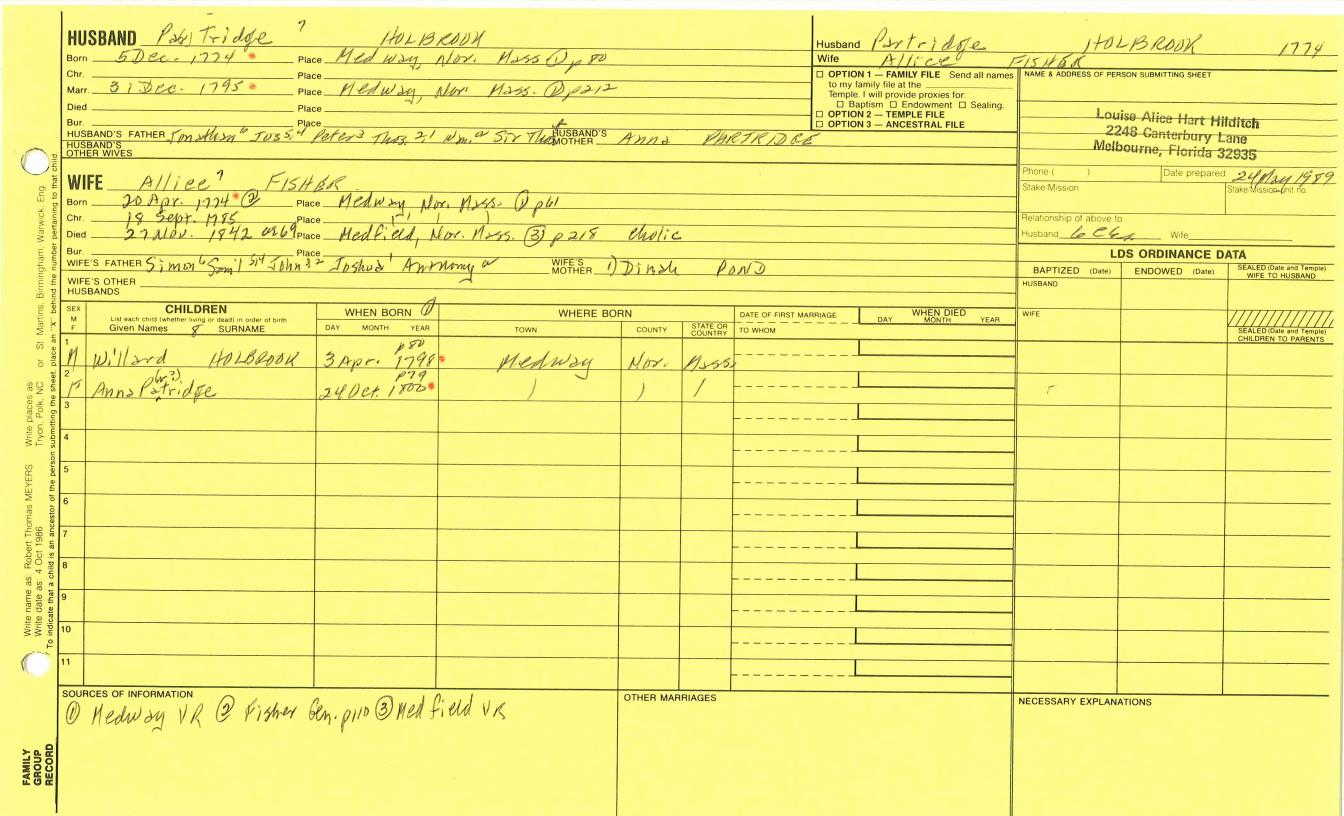 HUSBAND Partridge 7 HOLBROOK
Born 5 Dec. 1774 Place Medway, Nor. Mass ① p 80
Chr. Place
Marr. 31 Dec. 1795 Place Medway, Nor Mass. ① p212
Died Place
Bur. Place
HUSBAND'S FATHER Jonathan 6 Jos 5, 4 Peter 3 Thos. 2, 1 Wm. a Sir Thos HUSBAND'S MOTHER Anna PARTRIDGE
HUSBAND'S OTHER WIVES
WIFE Allice 7 FISHER
Born 20 Apr. 1774 ② Place Medway Nor. Mass. ① p61
Chr. 18 Sept. 1785 Place
Died 27 Nov. 1842 at 69 Place Medfield, Nor. Mass. ③ p218 cholic
Bur Place
WIFE'S FATHER Simon 6 Sam'l 5,4 John 3,2 Joshua 1 Anthony a WIFE'S MOTHER 1) Dinah POND
WIFE'S OTHER HUSBANDS
Husband Partridge HOLBROOK 1774
Wife Allice FISHER
OPTION 1 — FAMILY FILE Send all names
to my family file at the
Temple. I will provide proxies for:
Baptism Endowment Sealing.
OPTION 2 — TEMPLE FILE
OPTION 3 — ANCESTRAL FILE
NAME & ADDRESS OF PERSON SUBMITTING SHEET
Louise Alice Hart Hilditch
2248 Canterbury Lane
Melbourne, Florida 32935
Phone ( ) Date prepared 24 May 1989
Stake/Mission Stake/Mission unit no.
Relationship of above to
Husband 6C6x Wife
LDS ORDINANCE DATA
BAPTIZED (Date) ENDOWED (Date) SEALED (Date and Temple) WIFE TO HUSBAND
HUSBAND
WIFE
SEALED (Date and Temple) CHILDREN TO PARENTS
SEX M F
CHILDREN
List each child (whether living or dead) in order of birth
Given Names 8 SURNAME
WHEN BORN ①
DAY MONTH YEAR
WHERE BORN
TOWN COUNTY STATE OR COUNTRY
DATE OF FIRST MARRIAGE
TO WHOM
WHEN DIED
DAY MONTH YEAR
1 M Willard HOLBROOK 3 Apr. 1798 p80 Medway Nor. Mass.
2 F Anna Patridge (br ?) 24 Oct. 1800 p79 ) ) /
3
4
5
6
7
8
9
10
11
SOURCES OF INFORMATION
① Medway VR ② Fisher Gen. p110 ③ Medfield VR
OTHER MARRIAGES
NECESSARY EXPLANATIONS
Write name as: Robert Thomas MEYERS Write places as: Tryon, Polk, NC or St Martins, Birmingham, Warwick, Eng.
Write date as: 4 Oct 1986
To indicate that a child is an ancestor of the person submitting the sheet, place an "X" behind the number pertaining to that child
FAMILY
GROUP
RECORD